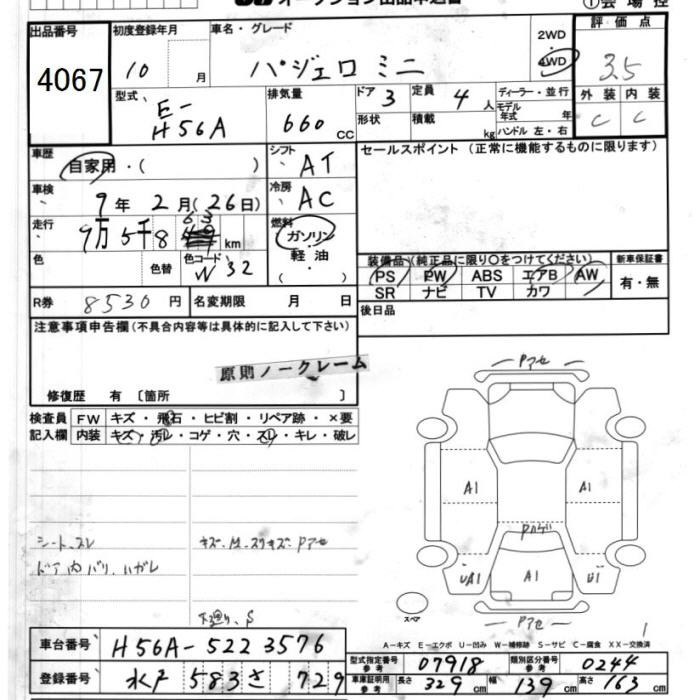 出品番号
4067
初度登録年月
10 月
車名・グレード
パジェロ ミニ
2WD
4WD
評価点
3.5
型式
E-
H56A
排気量
660 CC
ドア 3
形状
定員 4 人
積載 kg
ディーラー・並行
モデル年式 年
ハンドル 左・右
外装 内装
C C
車歴
自家用・( )
シフト AT
セールスポイント (正常に機能するものに限ります)
車検
9年 2月 (26日)
冷房 AC
走行
9万5千8 63 km
燃料
ガソリン
軽油
( ・ )
色
色替
色コード W32
装備品 (純正品に限り○をつけてください)
PS PW ABS エアB AW
SR ナビ TV カワ
新車保証書
有・無
R券 8530 円
名変期限 月 日
後日品
注意事項申告欄 (不具合内容等は具体的に記入して下さい)
原則ノークレーム
修復歴 有 〔箇所 〕
検査員記入欄
FW キズ・飛石・ヒビ割・リペア跡・×要
内装 キズ・汚レ・コゲ・穴・スレ・キレ・破レ
シートスレ
ドア内バリ ハガレ
キズ・M・スリキズ・Pアセ
下廻り、S
Pアセ
A1
A1
Pハゲ
UA1
A1
U1
スペア
Pアセ
1
A-キズ E-エクボ U-凹み W-補修跡 S-サビ C-腐食 XX-交換済
車台番号 H56A-5223576
型式指定番号参考 07918
類別区分番号参考 0244
登録番号 水戸 583 さ 729
車庫証明用参考 長さ 329 cm 幅 139 cm 高さ 163 cm